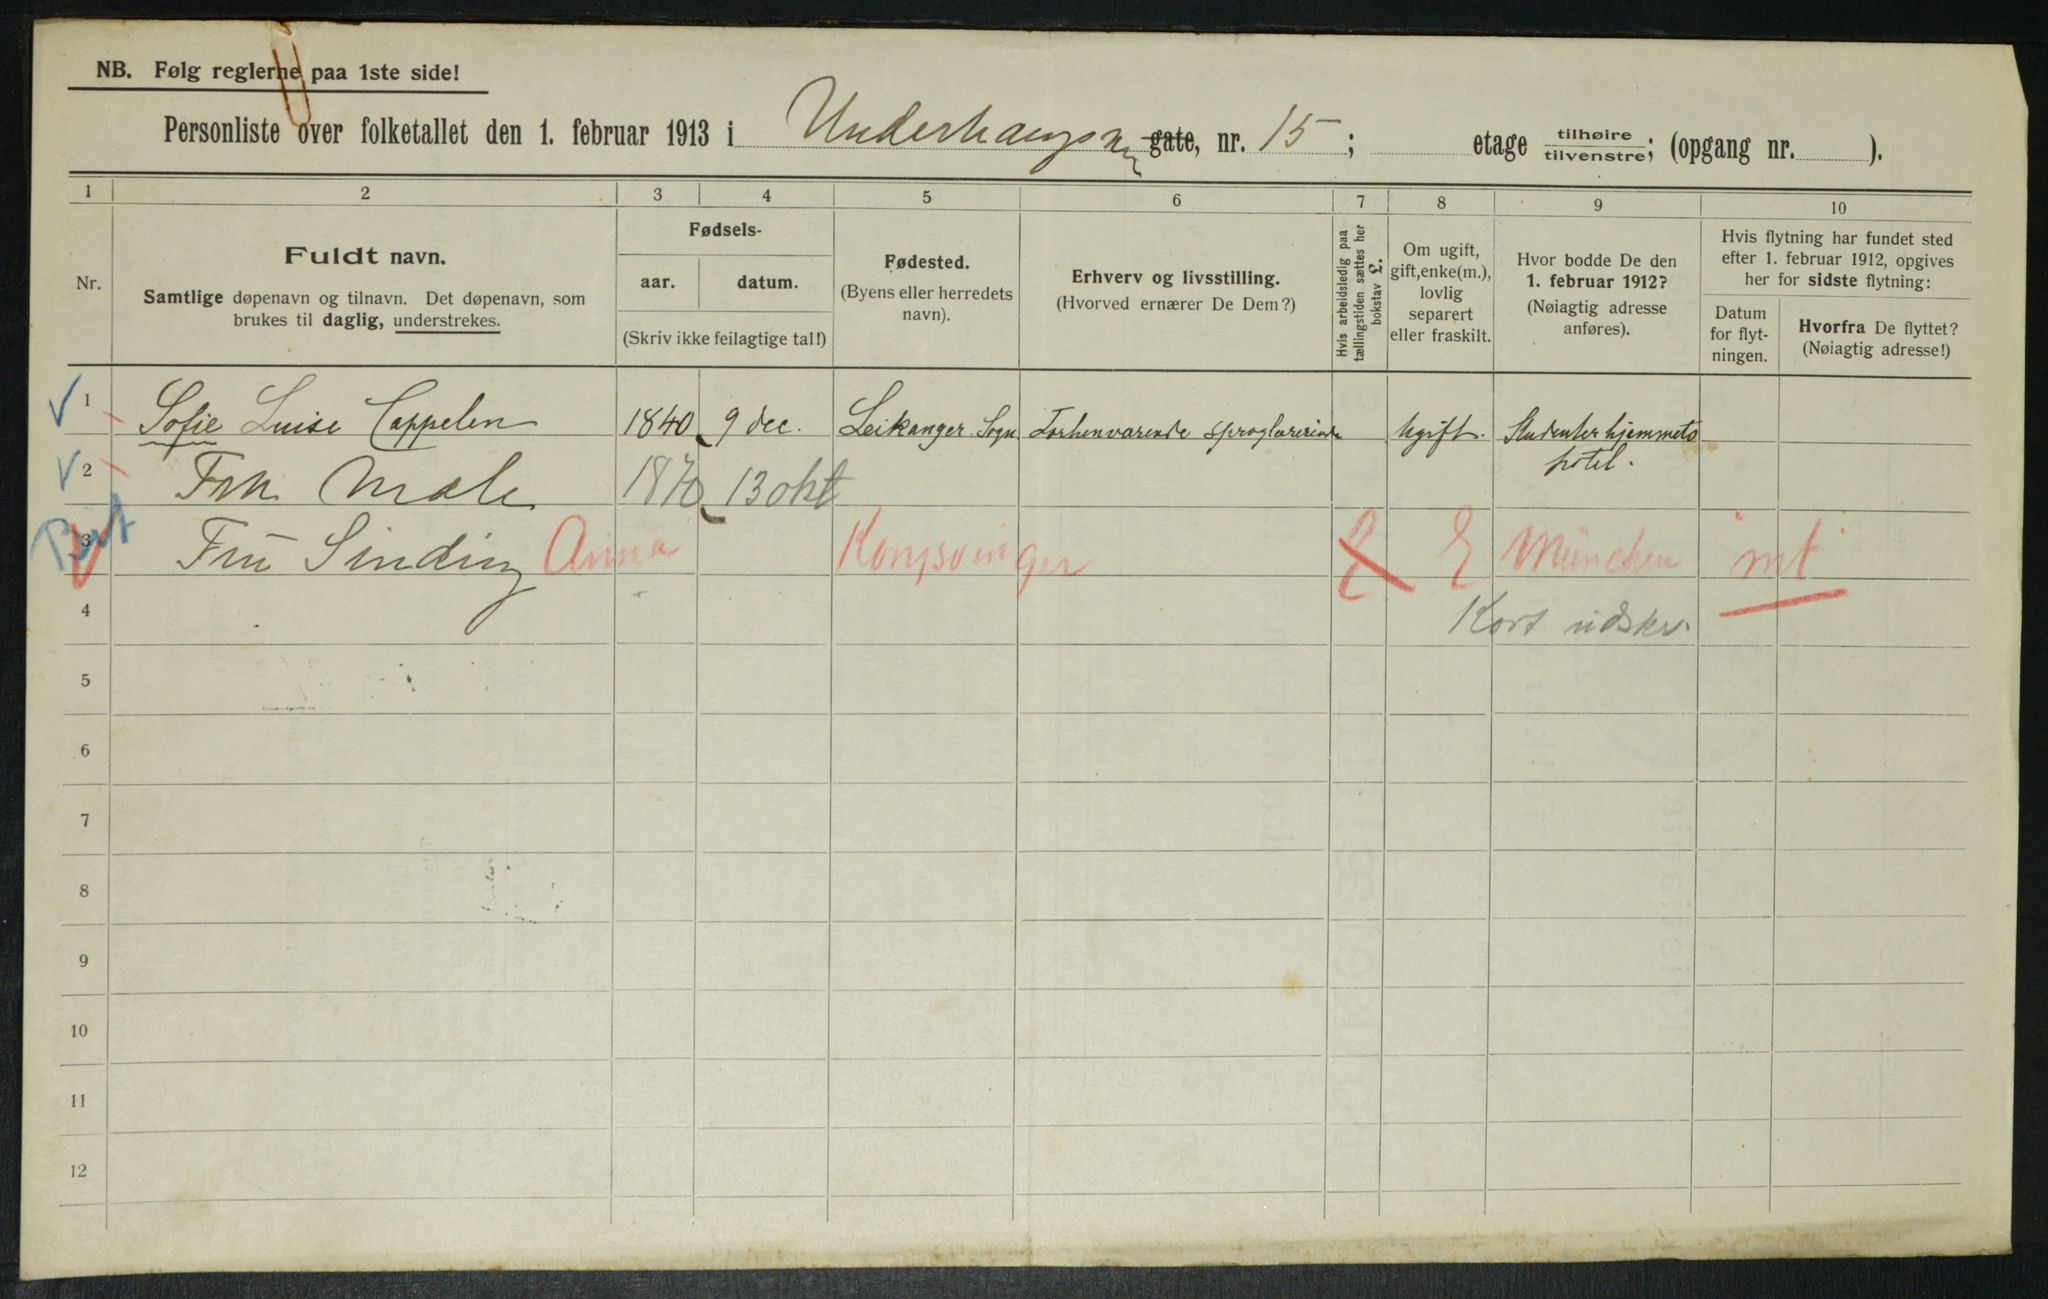 NB. Følg reglerne paa 1ste side!
Personliste over folketallet den 1. februar 1913 i Underhaugsv. gate, nr. 15; etage tilhøire tilvenstre; (opgang nr. ).
1 2 3 4 5 6 7 8 9 10
Nr.
Fuldt navn.
Samtlige døpenavn og tilnavn. Det døpenavn, som
brukes til daglig, understrekes.
Fødsels-
aar. datum.
(Skriv ikke feilagtige tal!)
Fødested.
(Byens eller herredets
navn).
Erhverv og livsstilling.
(Hvorved ernærer De Dem?)
Hvis arbeidsledig paa
tællingstiden sættes her
bokstav L.
Om ugift,
gift, enke(m.),
lovlig
separert
eller fraskilt.
Hvor bodde De den
1. februar 1912?
(Nøiagtig adresse
anføres).
Hvis flytning har fundet sted
efter 1. februar 1912, opgives
her for sidste flytning:
Datum
for flyt-
ningen.
Hvorfra De flyttet?
(Nøiagtig adresse!)
1 Sofie Luise Cappelen 1840 9 dec. Leikanger Sogn Forhenværende sproglærerinde Ugift. Studenterhjemmets
hotel.
2 Frk. Mæle 1870 13 okt
3 Fru Sinding Anna Kongsvinger E München
4 Kort udskr.
5
6
7
8
9
10
11
12